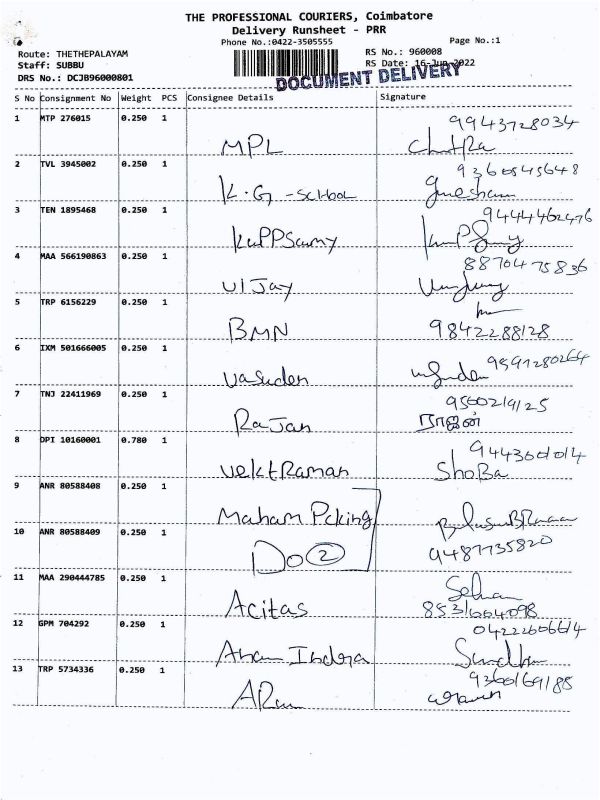 THE PROFESSIONAL COURIERS, Coimbatore
Delivery Runsheet - PRR
Phone No.:0422-3505555 Page No.:1
Route: THETHEPALAYAM RS No.: 960008
Staff: SUBBU RS Date: 16-Jun-2022
DRS No.: DCJB96000801 DOCUMENT DELIVERY
S No Consignment No Weight PCS Consignee Details Signature
1 MTP 276015 0.250 1 MPL 9943728034
Chitra
2 TVL 3945002 0.250 1 K.G - School 9360545648
3 TEN 1895468 0.250 1 KuPPSamy 9444462476
4 MAA 566190863 0.250 1 VIJay 8870475836
5 TRP 6156229 0.250 1 BMN 9842288128
6 IXM 501666005 0.250 1 Vasuden 9591280264
7 TNJ 22411969 0.250 1 RaJan 9560219125
ராஜன்
8 DPI 10160001 0.780 1 VektRaman 9443601014
ShoBa
9 ANR 80588408 0.250 1 Maham Pcking
10 ANR 80588409 0.250 1 Do 2 9487735820
11 MAA 290444785 0.250 1 Acitas 8531604098
12 GPM 704292 0.250 1 Indra 04222606614
13 TRP 5734336 0.250 1 9360169185